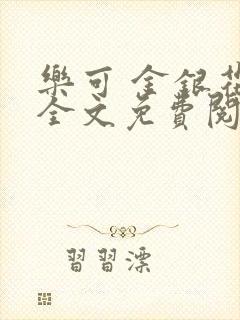 樂可 金銀花
全文免費閱
習習漂